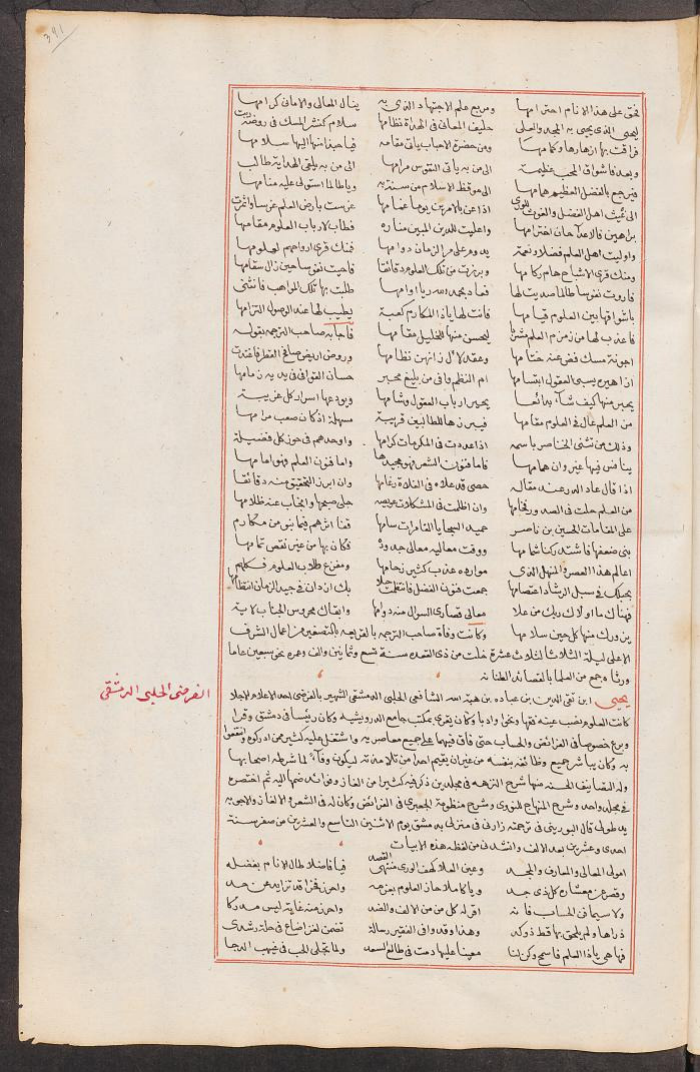 ٣٩١
فحق على هذا الانام احترامها ومربع علم الاجتهاد الذي به ينال المعالي والاماني كرامها
ليحيى الذي يحيى به المجد والعلى حليف المعاني في الهداة نظامها سلام كنشر المسك في روضة
فراقت بها ازهارها وكمامها ومن حضرة الاحباب يأت مقامه فيا حبذا منها اليها سلامها
وبعد فاشواق المحب عظيمة الى من به ياتي النفوس مرامها الى من به يلقى الهداية طالب
فيرجع بالفضل العظيم همامها الى موقظ الاسلام من سنة به ويا طالما استولى عليه منامها
الى غيث اهل الفضل والغوث للورى اذا عن بالامرين يوما غمامها غرست بارض العلم غرسا واثمرت
براهين فالاعدا حان اخترامها واعليت للدين المبين مناره فطاب لارباب العلوم مقامها
واوليت اهل العلم فضلا ونعمة يدوم على مر الزمان دوامها فمنك قرى ارواحهم لعلومها
ومنك قرى الاشباح هام ركامها وبرزت من تلك العلوم دقائقا فاحيت نفوسا حين زال سقامها
فاروت نفوسا طالما صديت لها فعاد بحمد الله ريا اوامها طلبت بها تلك المواهب فانثنى
باشواقها بين العلوم قيامها فانت لها ياذا المكارم كعبة يطيب لها عند الوصول التزامها
فاعذب لها من زمزم العلم مشربا ليحسن منها للخليل مقامها فاجابه صاحب الترجمة بقوله
اجونة مسك فض عنه ختامها وعقد لآل زانهن نظامها وروض اريض صافح القطر فاغتدت
ازاهيره يسبي العقول ابتسامها ام النظم وافى من بليغ محبر حسان القوافي في يديه زمامها
يحبر منها كيف شآء بدائعا يحير ارباب العقول وشامها ويودعها اسرار كل غريبة
من العلم غال في العلوم مقامها فيبرزها للطالبين قريبة مسهلة اذ كان صعب مرامها
وذلك من تثنى الخناصر باسمه اذا عددت في المكرمات كرامها واوحدهم في حوز كل فضيلة
ينافس فيها غيروان همامها فاما فنون الشعر فهو مجيدها واما فنون العلم فهو امامها
اذا قال عاد الدر عند مقاله حصى قد علاه في الفلاة رغامها وان ابرز التحقيق منه دقائقا
من العلم حلت في الصدور فخامها وان اظلمت في المشكلات عويصة جلى صبحها وانجاب عنه ظلامها
على المقامات الحسين بن ناصر حميد السجايا القامرات سامها قفا اثرهم فيما بنو من مكارم
بنى ضعفها فاشتد ركنا شمامها ووقت معاليه معالي جدوده فكان بها من غير نقص تمامها
اعالم هذا العصر والمنهل الذي موارده عذب كثير زحامها ومفزع طلاب العلوم فكلهم
بحبلك في سبل الرشاد اعتصامها جمعت فنون الفضل فانتظمت حلا بك ازدان في جيد الزمان انتظامها
فهناك ما اولاك ربك من علا معالي قصارى السؤال منه دوامها وابقاك محروس الجناب لاية
يزورك منها كل حين سلامها وكانت وفاة صاحب الترجمة بالقريعه بالتصغير من اعمال الشرف
الاعلى ليلة الثلاثا لثلاث عشرة خلت من ذى القعده سنة تسع وثمانين والف وعمره نحو سبعين عاما
ورثاه جمع من العلما بالقصائد الطنانه
الفرضى الحلبى الدمشقى
يحيى ابن تقي الدين بن عباده بن هبة الله الشافعى الحلبى الدمشقى الشهير بالفرضى احد الاعلام الاجلا
كانت العلوم نصب عينه فقها ونحوا وادبا وكان يقرى بمكتب جامع الدرويشيه وكان رئيسا في دمشق وقرا
وبرع خصوصا في الفرائض والحساب حتى فاق فيهما على جميع معاصريه واشتغل عليه كثير ممن ادركوه وانتفعوا
به وكان يباشر جميع وظائفه بنفسه من غير ان يقيم احدا من تلامذته ليكون وفاء لما شرطه اصحابها
وله التصانيف الحسنه منها شرح النزهه في مجلدين ذكر فيه كثيرا من الغاز وفوائد ضمها اليه ثم اختصره
في مجلد واحد وشرح المنهاج للنووى وشرح منظومة الجعبري في الفرائض وكان له في الشعر والالغاز والاجوبه
يد طولى قال البورينى في ترجمته زارنى في منزلى بدمشق يوم الاثنين التاسع والعشرين من صفر سنة
احدى وعشرين بعد الالف وانشدنى من لفظه هذه الابيات
امولى المعالي والمعارف والمجد وعين العلا كهف الورى منتهى القصد فيا فاضلا طال الانام بفضله
وقصر عن معشاره كل ذي جد ويا كاملا حاز العلوم بعزمه واحرز فخرا قد تزايد عن حد
ولا سيما فن الحساب فانه اقر له كل من الالف والضد واحرز منه غاية ليس مدركا
ذراها ولم يلحق بها قط ذو كد وهذا وقد وافى الفقير رسالة تضمن لغزا ضاع في حله رشدى
فها هي ياذا العلم فاسمح وكن لنا معينا عليها دمت في طالع السعد ولما تجلى الحب في غيهب الدجا